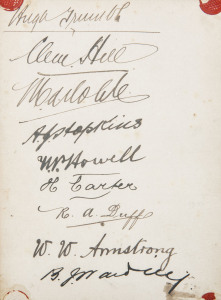 Hugh Trumble
Clem Hill
M a Noble
A J Hopkins
W.P. Howell
H Carter
R. A. Duff
W. W. Armstrong
B. J. Wardill